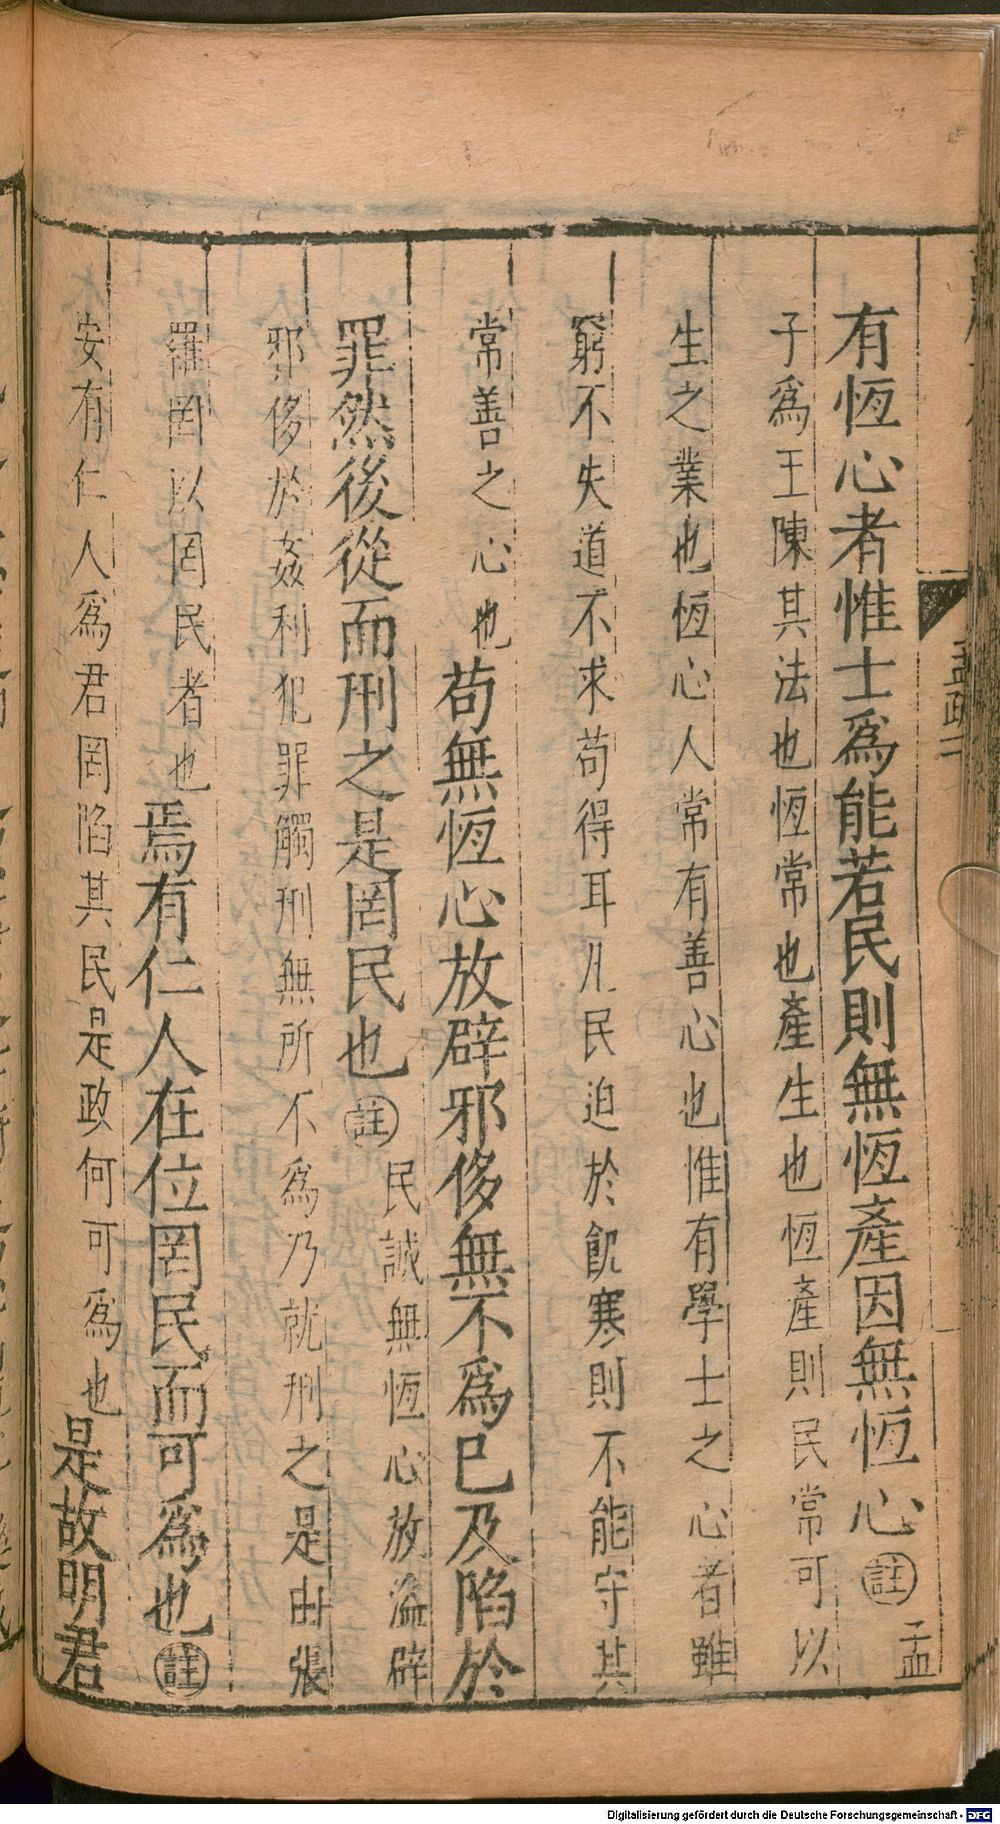 有恆心者惟士爲能若民則無恆產因無恆心註孟
子爲王陳其法也恆常也產生也恆產則民常可以
生之業也恆心人常有善心也惟有學士之心者雖
窮不失道不求苟得耳凡民迫於飢寒則不能守其
常善之心也苟無恆心放辟邪侈無不爲巳及陷於
罪然後從而刑之是罔民也註民誠無恆心放溢辟
邪侈於姦利犯罪觸刑無所不爲乃就刑之是由張
羅罔以罔民者也焉有仁人在位罔民而可爲也註
安有仁人爲君罔陷其民是政何可爲也是故明君
Digitalisierung gefördert durch die Deutsche Forschungsgemeinschaft - DFG